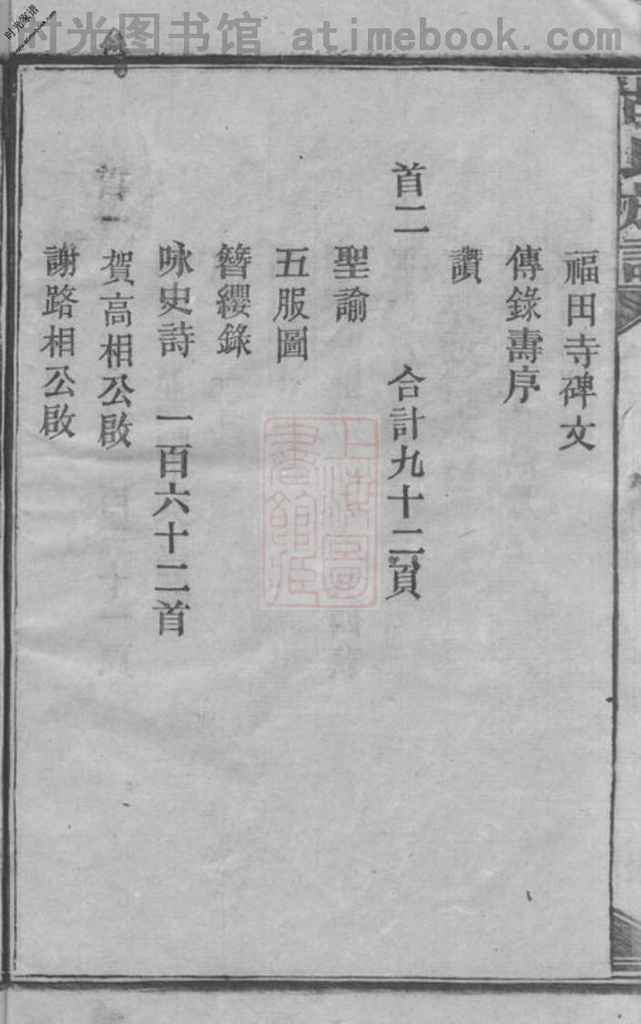 时光图书馆 atimebook.com
时光家谱
福田寺碑文
傳錄壽序
讚
首二 合計九十二頁
聖諭
五服圖
簪纓錄
咏史詩 一百六十二首
賀高相公啟
謝路相公啟